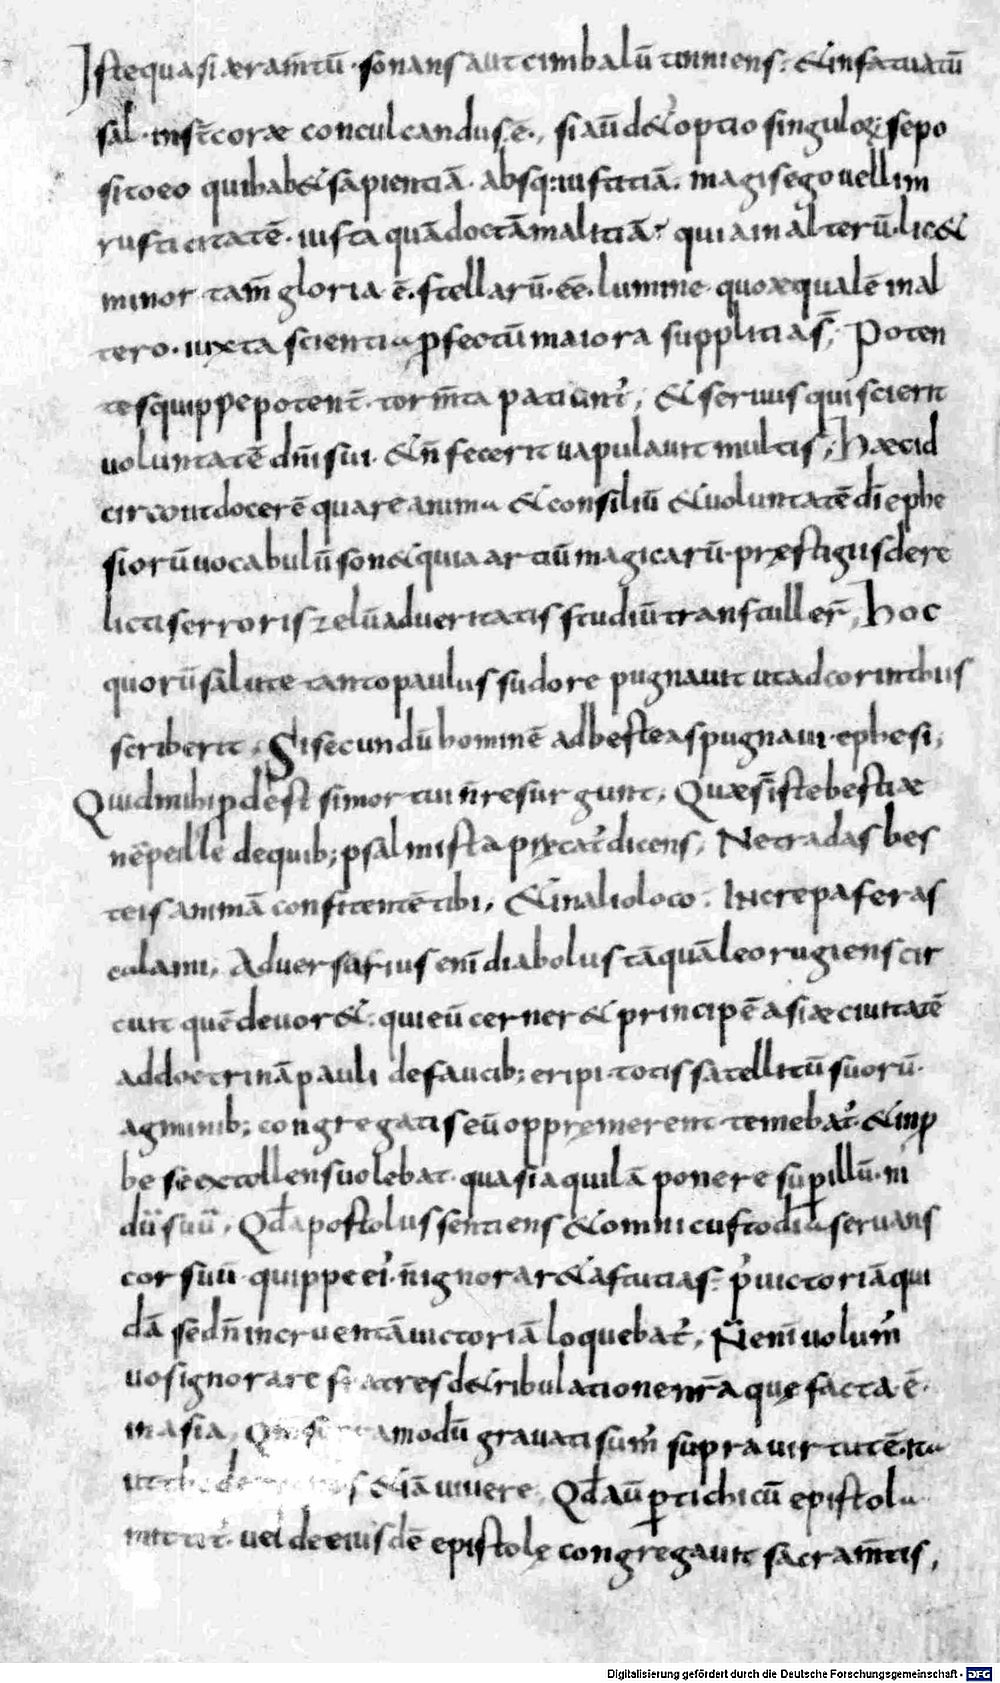 Istequasi æram̅tū · sonans aut cimbalū tinniens : & infatuatū
sal · insťcoræ conculcandus ē ·, si aūd& optio singuloꝝ; sepo
sitoeo quihab& sapientiā · absq: iustitiā. magis ego vellim
rusticitatē · iusta quādoctāmalitiā: quia in alterū · lic&
minor tam̅ gloria ē. stellarū · eē. lumine quoæqualē inal
tero · iuxta scientia ꝑfectū maiora suppliciaŝ; Poten
tesquippepotenť · torm̅ta patiunť; & servus qui scierit
voluntatē dn̅i sui · & n̅ fecerit vapulavit multis; Hæcid
circoutdocerē quare anima & consiliū & voluntatē dī ephe
siorū vocabulū son& quia artiū magicarū præstigiis dere
licti serroris zelū adveritatis studiū transtuller̅; Hoc
quorū salute tanto paulus sudore pugnavit ut ad corinthus
scriberit · Si secundū hominē ad besteas pugnavi · ephesi;
Quid mihi ꝓdest si mortui n̅ resurgunt; Quæ s̅ iste bestiæ
nēpe ille dequib; psalmista precať dicens; Netradas bes
teis animā confitentē tibi, & in alio loco · Increpa feras
calami; Adversarius enī diabolus tāquā leo rugiens cir
cuit quē devor& : qui eū cerner& principē asiæ civitatē
ad doctrinā pauli defaucib; eripi · totis satellitū suorū ·
agminib; congregatis eū oppremerent temebať · & inꝓ
be se extollens volebat · quasi aquilā ponere suꝑillū · ni
dū suū · Qd̅ apostolus sentiens & omni custodia servans
cor suū quippe ei' n̅ ignorar& astutias : ꝓ victoriā qui
dā sed n̅ incruentā victoriā loquebať; N̅ enī volum'
vos ignorare fratres de tribulatione nr̅a que facta · ē ·
in asia, Qm̅ modū gravati sum' supra virtutē · ita
ut &iā vivere; Qd̅ aū ꝑ tichicū epistola
mittiť · vel de eiusdē epistolę congregavit sacram̅tis,
Digitalisierung gefördert durch die Deutsche Forschungsgemeinschaft - DFG